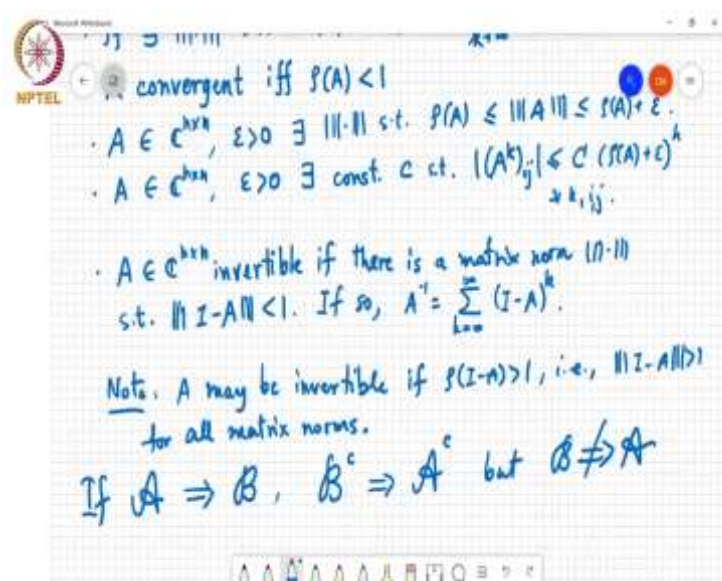 convergent iff ρ(A) < 1
· A ∈ ℂⁿˣⁿ, ε>0 ∃ |||·||| s.t. ρ(A) ≤ |||A||| ≤ ρ(A)+ε.
· A ∈ ℂⁿˣⁿ, ε>0 ∃ const. C s.t. |(Aᵏ)ᵢⱼ| ≤ C (ρ(A)+ε)ᵏ
∀ k, i,j.
· A ∈ ℂⁿˣⁿ invertible if there is a matrix norm |||·|||
s.t. ||| I-A ||| < 1. If so, A⁻¹ = ∑ (I-A)ᵏ.
Note. A may be invertible if ρ(I-A)>1, i.e., |||I-A|||>1
for all matrix norms.
If A ⇒ B, Bᶜ ⇒ Aᶜ but B ⇏ A
NPTEL